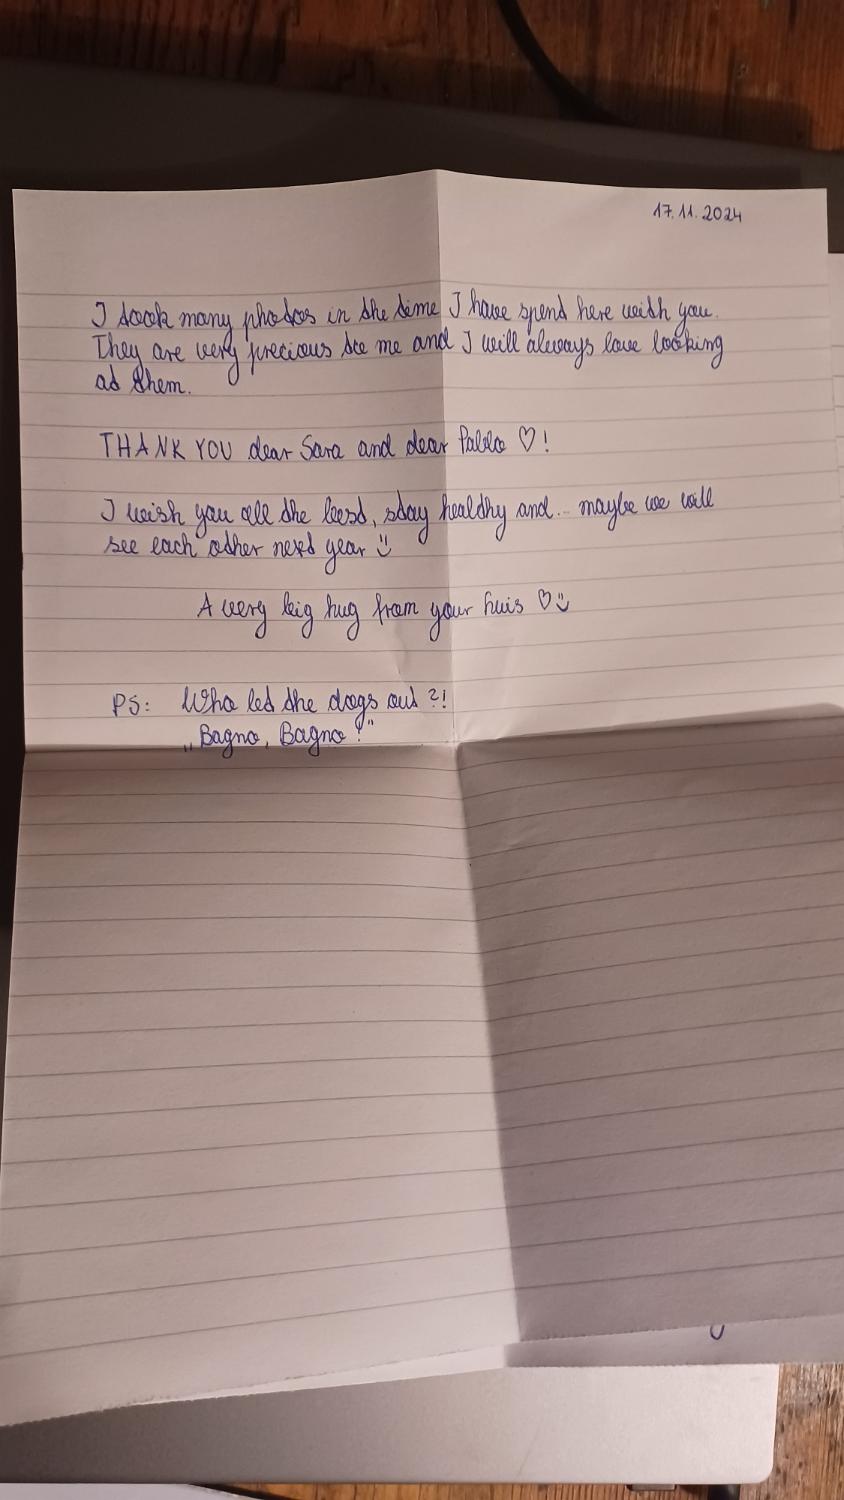 17.11.2024
I took many photos in the time I have spend here with you.
They are very precious to me and I will always love looking
at them.
THANK YOU dear Sara and dear Pablo ♡!
I wish you all the best, stay healthy and... maybe we will
see each other next year ☺
A very big hug from your huis ♡☺
PS: Who let the dogs out?!
„Bagno, Bagno!"